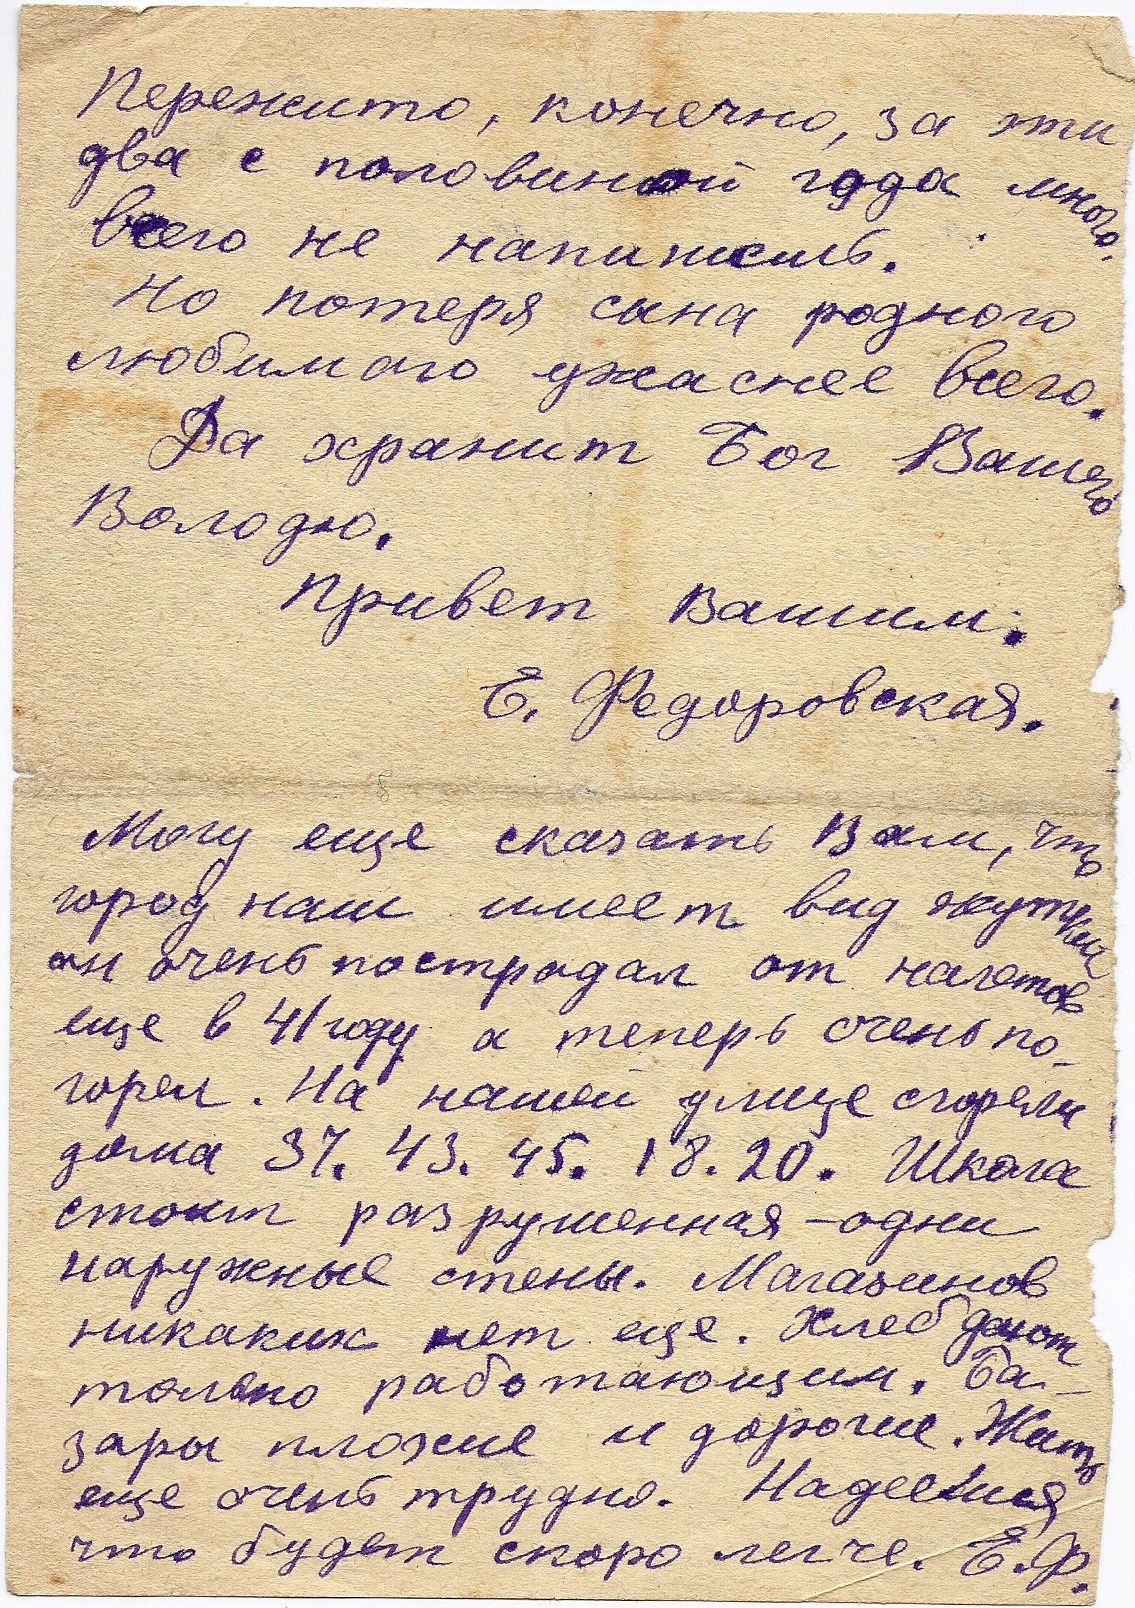 Пережито, конечно, за эти
два с половиной года много.
всего не напишешь.
Но потеря сына родного
любимого ужаснее всего.
Да хранит Бог Вашего
Володю.
Привет Вашим.
Е. Федоровская.
Могу еще сказать Вам, что
город наш имеет вид жуткий
он очень пострадал от налетов
еще в 41 году а теперь очень по-
горел. На нашей улице сгорели
дома 37. 43. 45. 18. 20. Школа
стоит разрушенная - одни
наружные стены. Магазинов
никаких нет еще. Хлеб дают
только работающим. Ба-
зары плохие и дорогие. Жить
еще очень трудно. Надеемся
что будет скоро легче. Е.Ф.